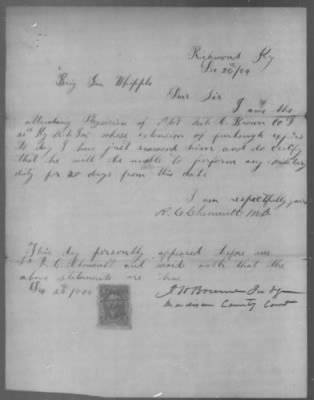 Richmond Ky
Dec 20th/99
Brig Gen Whipple
Dear Sir
I am the
attending Physician of 1st Lt. A. Brown Co
Ky whose extension of furlough expires
to day I have just examined him and do certify
that he will be unable to perform any military
duty for 20 days from this date
I am respectfully yours
R. C. Chenault M.D.
This day personally appeared before me
R. C. Chenault and made oath that the
above statements are true
Dec 20th
Judge
Madison County Court